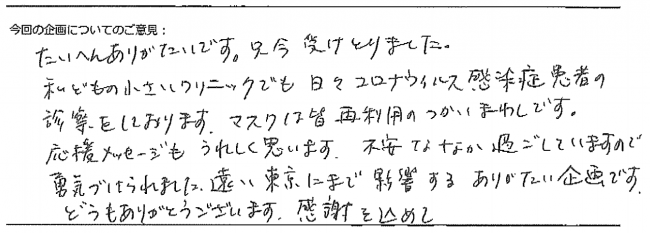 今回の企画についてのご意見：
たいへんありがたいです。只今受けとりました。
私どもの小さいクリニックでも日々コロナウィルス感染症患者の
診察をしております。マスクは皆再利用のつかいまわしです。
応援メッセージもうれしく思います。不安ななか過ごしていますので
勇気づけられました。遠い東京にまで影響するありがたい企画です。
どうもありがとうございます。感謝を込めて